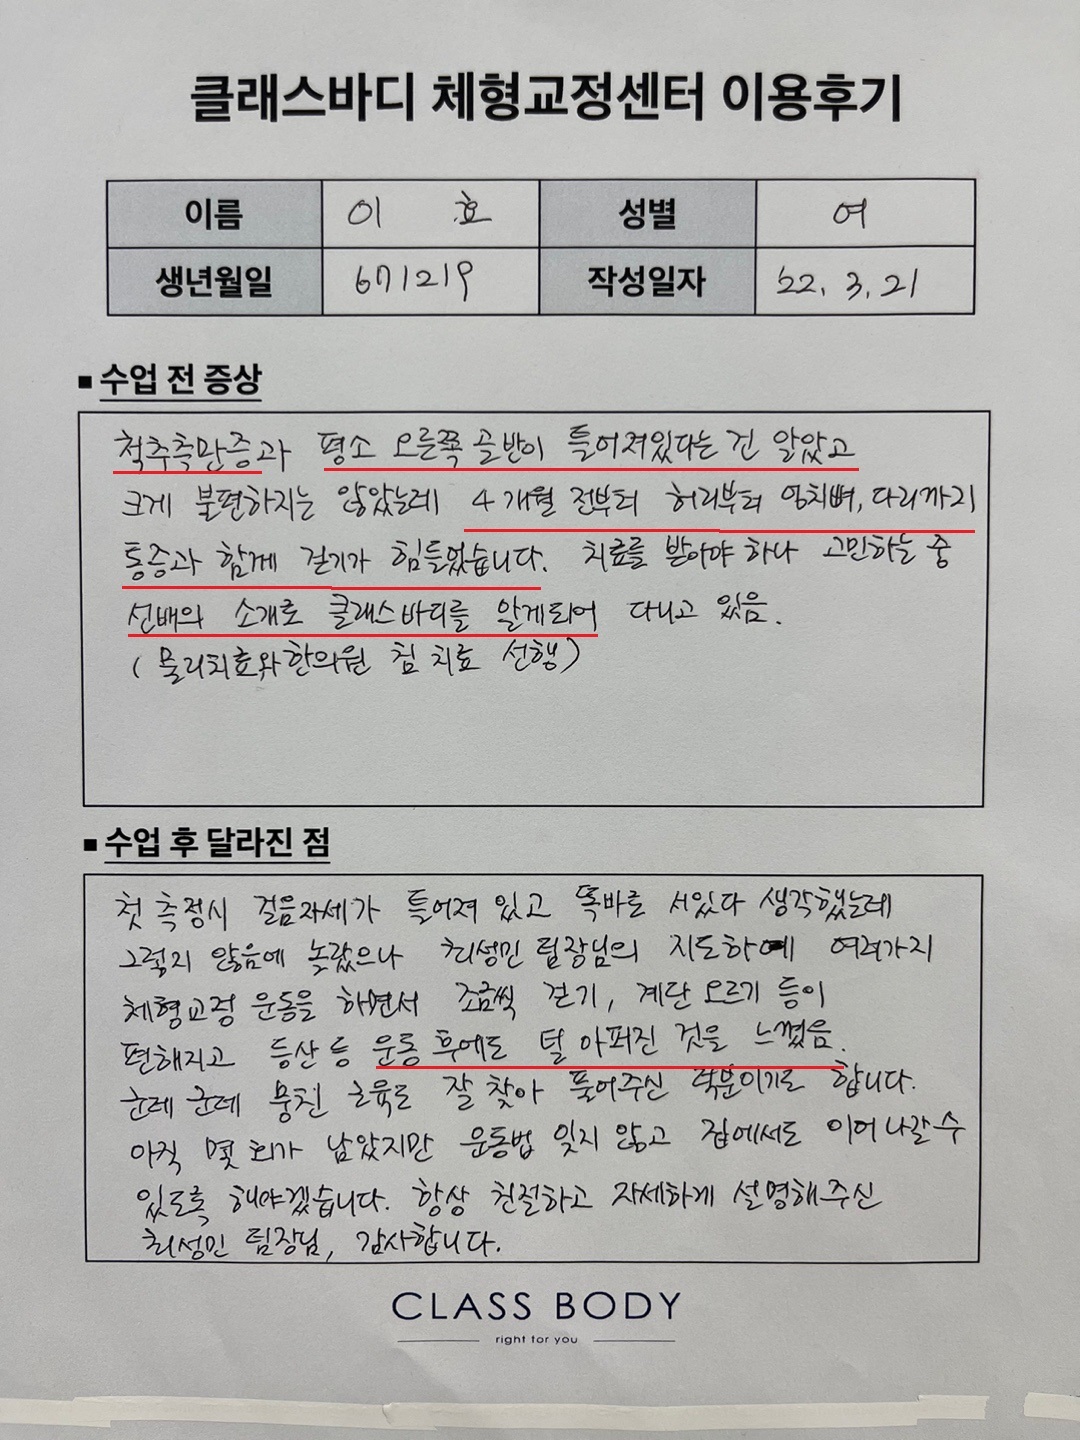 클래스바디 체형교정센터 이용후기
이름 이 효 성별 여
생년월일 671219 작성일자 22. 3. 21
■ 수업 전 증상
척추측만증과 평소 오른쪽 골반이 틀어져있다는 건 알았고
크게 불편하지는 않았는데 4개월 전부터 허리부터 엉치뼈, 다리까지
통증과 함께 걷기가 힘들었습니다. 치료를 받아야 하나 고민하는 중
선배의 소개로 클래스바디를 알게되어 다니고 있음.
(물리치료와 한의원 침 치료 선행)
■ 수업 후 달라진 점
첫 측정시 걸음자세가 틀어져 있고 똑바로 서있다 생각했는데
그렇지 않음에 놀랐으나 최성민 팀장님의 지도하에 여러가지
체형교정 운동을 하면서 조금씩 걷기, 계단 오르기 등이
편해지고 등산 등 운동 후에도 덜 아퍼진 것을 느꼈음.
군데 군데 뭉친 근육로 잘 찾아 풀어주신 덕분이기로 합니다.
아직 몇 회가 남았지만 운동법 잊지 않고 집에서도 이어 나갈 수
있도록 해야겠습니다. 항상 친절하고 자세하게 설명해주신
최성민 팀장님, 감사합니다.
CLASS BODY
right for you